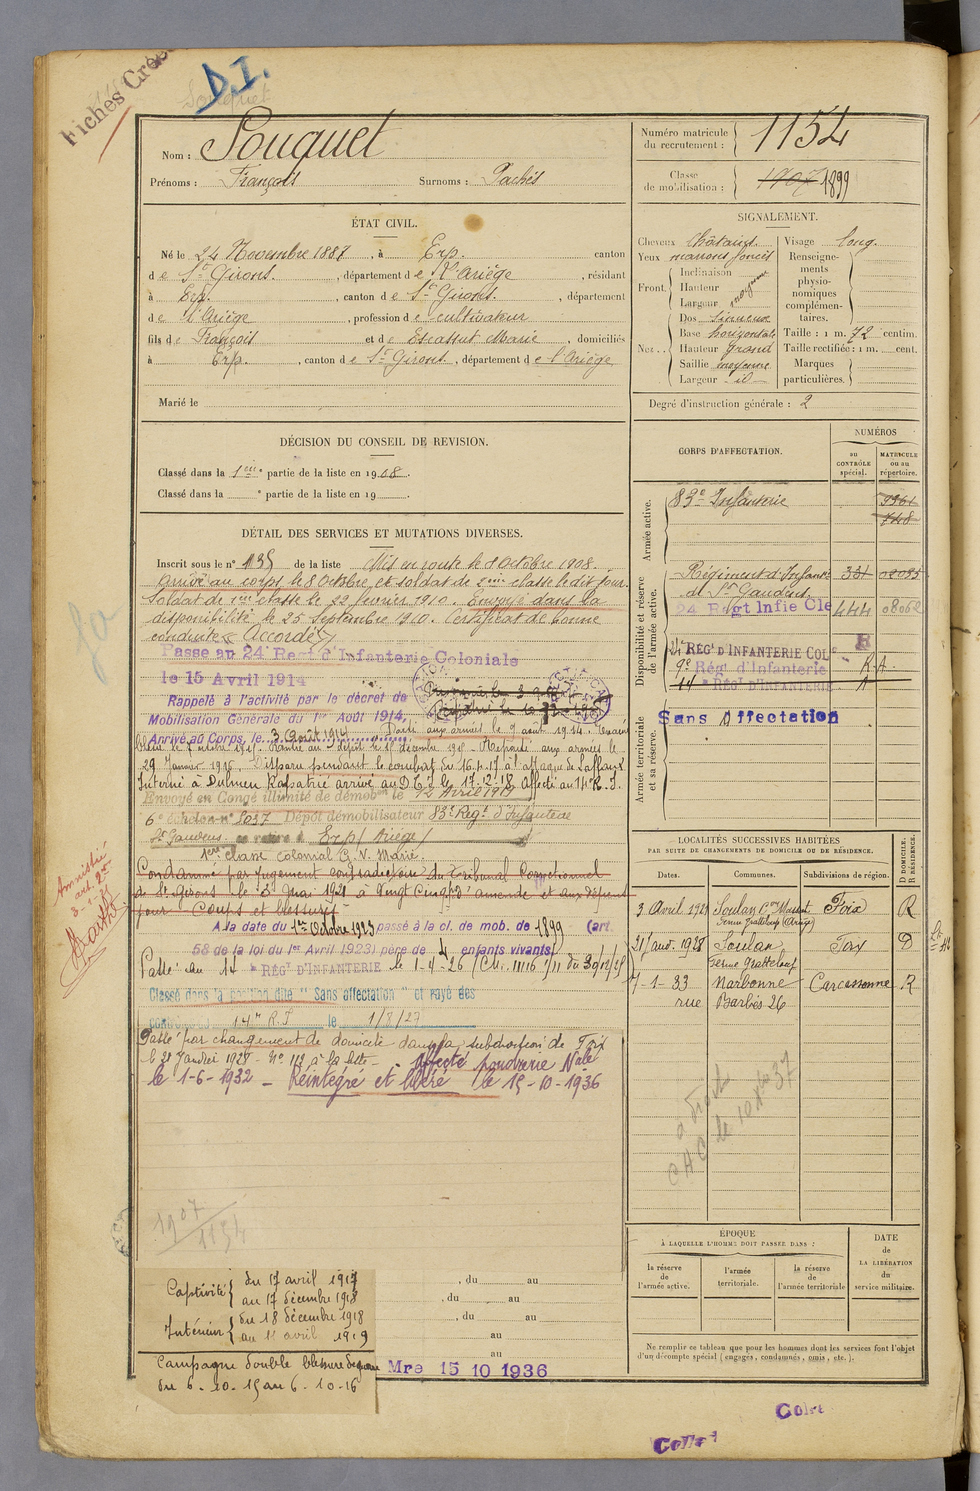 Fichés Créc
D.I.
Souquet
Nom : Souquet
Prénoms : François Surnoms : Pachés
Numéro matricule du recrutement : 1154
Classe de mobilisation : 1907 1899
ÉTAT CIVIL.
Né le 24 Novembre 1887, à Erp. canton
de St Girons. , département de l'Ariège , résidant
à Erp. , canton de St Girons. , département
de l'Ariège , profession de cultivateur
fils de François et de Escassut Marie , domiciliés
à Erp. , canton de St Girons , département de l'Ariège
Marié le
SIGNALEMENT.
Cheveux châtains. Visage long.
Yeux marrons foncés
Renseignements physionomiques complémentaires.
Front. Inclinaison
Hauteur
Largeur
moyenne
Nez. Dos sinueux
Base horizontale
Hauteur grand
Saillie moyenne
Largeur id
Taille : 1 m. 72 centim.
Taille rectifiée : 1 m. cent.
Marques particulières.
Degré d'instruction générale : 2
DÉCISION DU CONSEIL DE REVISION.
Classé dans la 1ère partie de la liste en 1908.
Classé dans la e partie de la liste en 19
DÉTAIL DES SERVICES ET MUTATIONS DIVERSES.
Inscrit sous le n° 135 de la liste Mis en route le 8 Octobre 1908.
Arrivé au corps le 8 Octobre et soldat de 2ème classe ledit jour.
Soldat de 1ère classe le 22 février 1910. Envoyé dans la
disponibilité le 25 Septembre 1910. Certificat de bonne
conduite « Accordé »
Passé au 24e Regt d'Infanterie Coloniale
le 15 Avril 1914
Rappelé à l'activité par le décret de
Mobilisation Générale du 1er Août 1914,
Arrivé au Corps, le 3 Août 1914
Parti aux armées le 9 août 1914. Evacué
29 Janvier 1916 Disparu pendant le combat du 16-4-17 à l'attaque de Laffaux
Interné à Dulmen Rapatrié arrivé au D.T.I. le 17-12-18 Affecté au 14e R.I.
Envoyé en Congé illimité de démobon le 12 Avril 1919
6e échelon n° 8037 Dépôt démobilisateur 83e Régt d'Infanterie
St Gaudens. se retire à Erp (Ariège)
1ère classe colonial G.V. Marié.
Condamné par jugement contradictoire du Tribunal Correctionnel
de St Girons le 3 Mai 1921 à Vingt Cinq frs d'amende et aux dépens
pour Coups et blessures
Amnistié
art. 2
A la date du 1er Octobre 1923 passé à la cl. de mob. de 1899 (art.
58 de la loi du 1er Avril 1923) père de 4 enfants vivants
Passé au 14e RÉGt D'INFANTERIE le 1-4-26
Classé dans la position dite "Sans affectation" et rayé des
14e R.I le 1/8/27
Passé par changement de domicile dans la subdivision de Foix
le 21 Janvier 1928 - N° 112 à la liste - Affecté poudrerie Nale
le 1-6-1932 - Réintégré et libéré le 15-10-1936
1907
1154
Captivité du 17 avril 1917
au 17 décembre 1918
Intérieur du 18 décembre 1918
au 11 avril 1919
Campagne double blessure de guerre
du 6-10-15 au 6-10-16
, du au
, du au
, du au
au
au
Mre 15 10 1936
CORPS D'AFFECTATION.
NUMÉROS
AU CONTRÔLE spécial.
MATRICULE ou au répertoire.
Armée active.
83e Infanterie
9361
748
Disponibilité et réserve de l'armée active.
Régiment d'Infantie de St Gaudens. 331 02095
24 Regt Infie Cle 444 08062
24e RÉGt D'INFANTERIE COLe
9e Régt d'Infanterie R.A
14e RÉGt D'INFANTERIE
Armée territoriale et sa réserve.
Sans Affectation
LOCALITÉS SUCCESSIVES HABITÉES,
PAR SUITE DE CHANGEMENTS DE DOMICILE OU DE RÉSIDENCE.
Dates. Communes. Subdivisions de région. D DOMICILE. R RÉSIDENCE.
3 Avril 1921 Soulan Foix R
21 janv. 1928 Soulan Foix D
Ferme Gratteloup
7-1-33 Narbonne Carcassonne R
rue Barbès 26
le 10 37
ÉPOQUE
À LAQUELLE L'HOMME DOIT PASSER DANS :
la réserve de l'armée active.
l'armée territoriale.
la réserve de l'armée territoriale
DATE de LA LIBÉRATION du service militaire.
Ne remplir ce tableau que pour les hommes dont les services font l'objet
d'un décompte spécial (engagés, condamnés, omis, etc.).